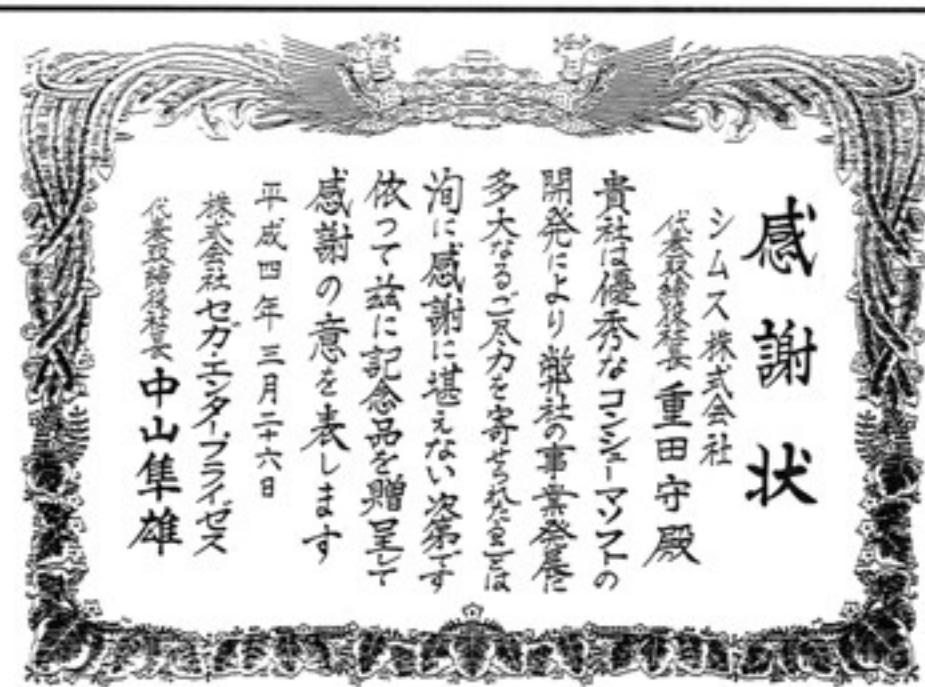 感謝状
シムス株式会社
代表取締役社長 重田守殿
貴社は優秀なコンシューマソフトの
開発により弊社の事業発展に
多大なるご尽力を寄せられたことは
洵に感謝に堪えない次第です
依って茲に記念品を贈呈して
感謝の意を表します
平成四年三月二十六日
株式会社セガ・エンタープライゼス
代表取締役社長 中山隼雄